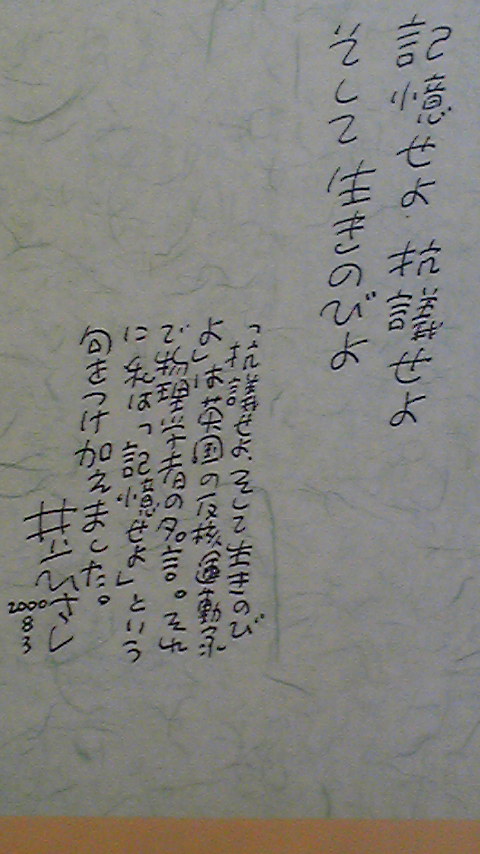 記憶せよ 抗議せよ
そして生きのびよ
「抗議せよ、そして生きのび
よ」は英国の反核運動家
で物理学者の名言。それ
に私は「記憶せよ」という
句をつけ加えました。
井上ひさし
2000
8
3